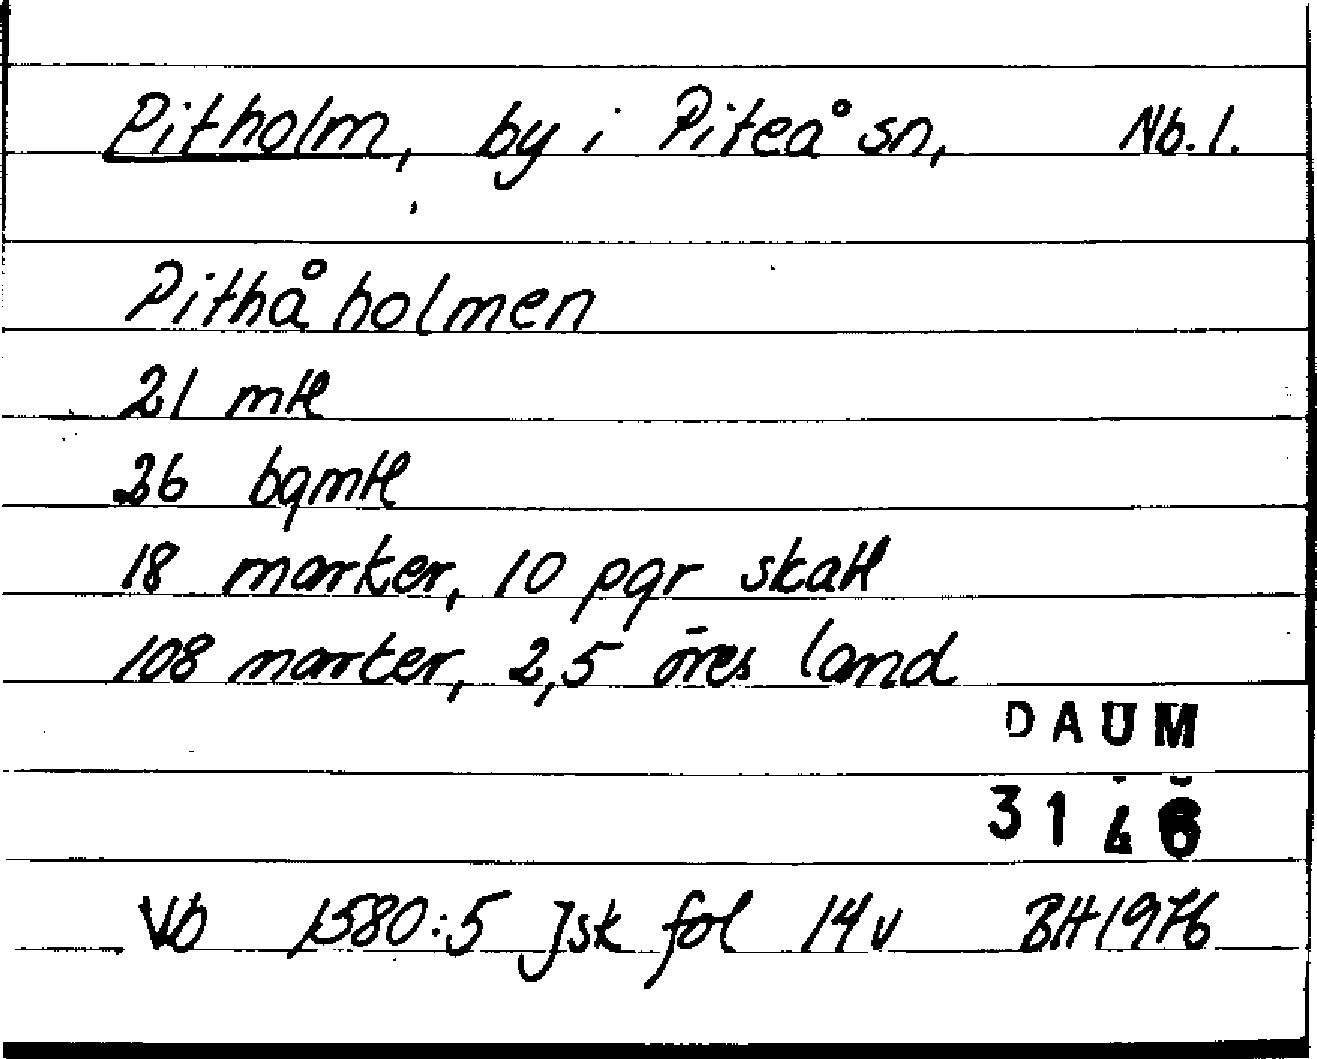 Pitholm, by i Piteå sn, Nb. l.
Pithå holmen
21 mtl
26 bqmtl
18 marker, 10 pgr skatt
108 marker, 2,5 öres land
DAUM
3146
Vb 1580:5 Jsk fol 14 v BH 1976